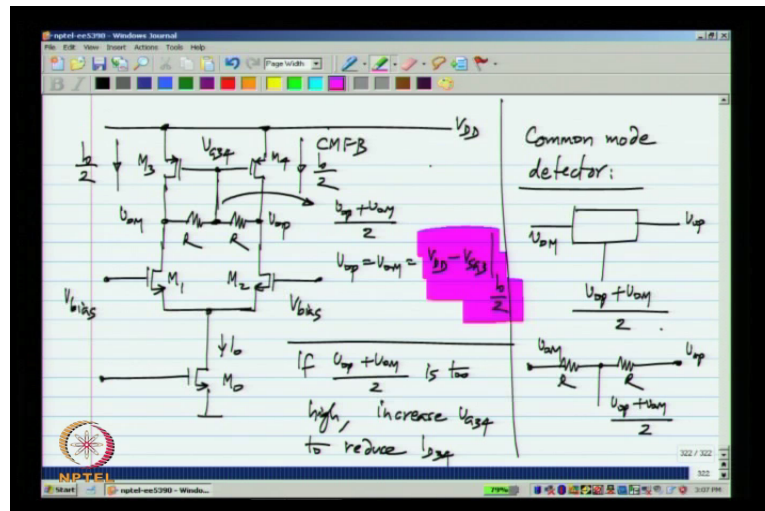 nptel-ee5390 - Windows Journal
File Edit View Insert Actions Tools Help
Page Width
V_DD
I_0/2
M_3
V_G34
M_4
CMFB
I_0/2
V_OM
R
R
V_OP
(V_OP + V_OM)/2
V_OP = V_OM = V_DD - V_SG3 | I_0/2
V_bias
M_1
M_2
V_bias
I_0
M_0
if (V_OP + V_OM)/2 is too
high, increase V_G34
to reduce I_D34
Common mode
detector:
V_OM
V_OP
(V_OP + V_OM)/2
V_OM
R
R
V_OP
(V_OP + V_OM)/2
322 / 322
322
NPTEL
Start
nptel-ee5390 - Windo...
79%
3:07 PM